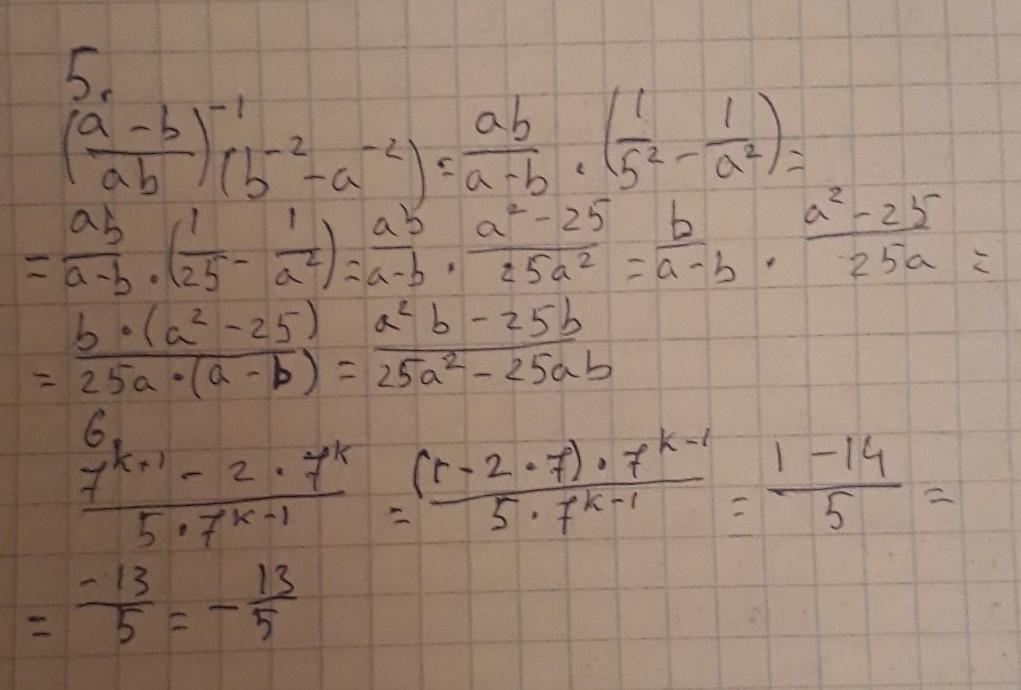 5.
((a - b)/(ab))^-1 (b^-2 - a^-2) = (ab)/(a - b) · (1/5^2 - 1/a^2) =
= (ab)/(a - b) · (1/25 - 1/a^2) = (ab)/(a - b) · (a^2 - 25)/(25a^2) = b/(a - b) · (a^2 - 25)/(25a) =
= (b · (a^2 - 25))/(25a · (a - b)) = (a^2 b - 25b)/(25a^2 - 25ab)
6.
(7^(k+1) - 2 · 7^k)/(5 · 7^(k-1)) = ((1 - 2 · 7) · 7^(k-1))/(5 · 7^(k-1)) = (1 - 14)/5 =
= (-13)/5 = - 13/5